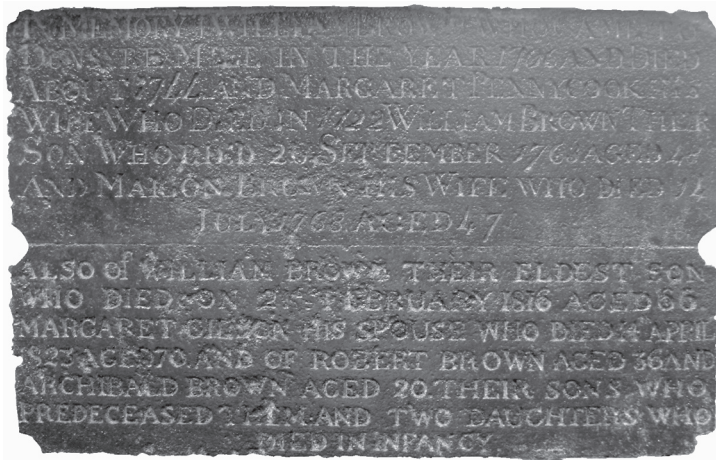 IN MEMORY WILLIAM BROWN WHO
IN THE YEAR AND DIED
ABOUT 1744 AND MARGARET PENNYCOOK HIS
WIFE WHO DIED IN 1722 WILLIAM BROWN THER
SON WHO DIED 20 SEPTEMBER 1768 AGED
AND MARION BROWN HIS WIFE WHO DIED
JULY 1768 AGED 47
ALSO Of WILLIAM BROWN THEIR ELDEST SON
WHO DIED ON 21st FEBRUARY 1816 AGED 66
MARGARET HIS SPOUSE WHO DIED 14 APPIL
1823 AGED 70 AND OF ROBERT BROWN AGED 36 AND
ARCHIBALD BROWN AGED 20. THEIR SONS WHO
PREDECEASED THEM. AND TWO DAUGHTERS WHO
DIED IN INFANCY